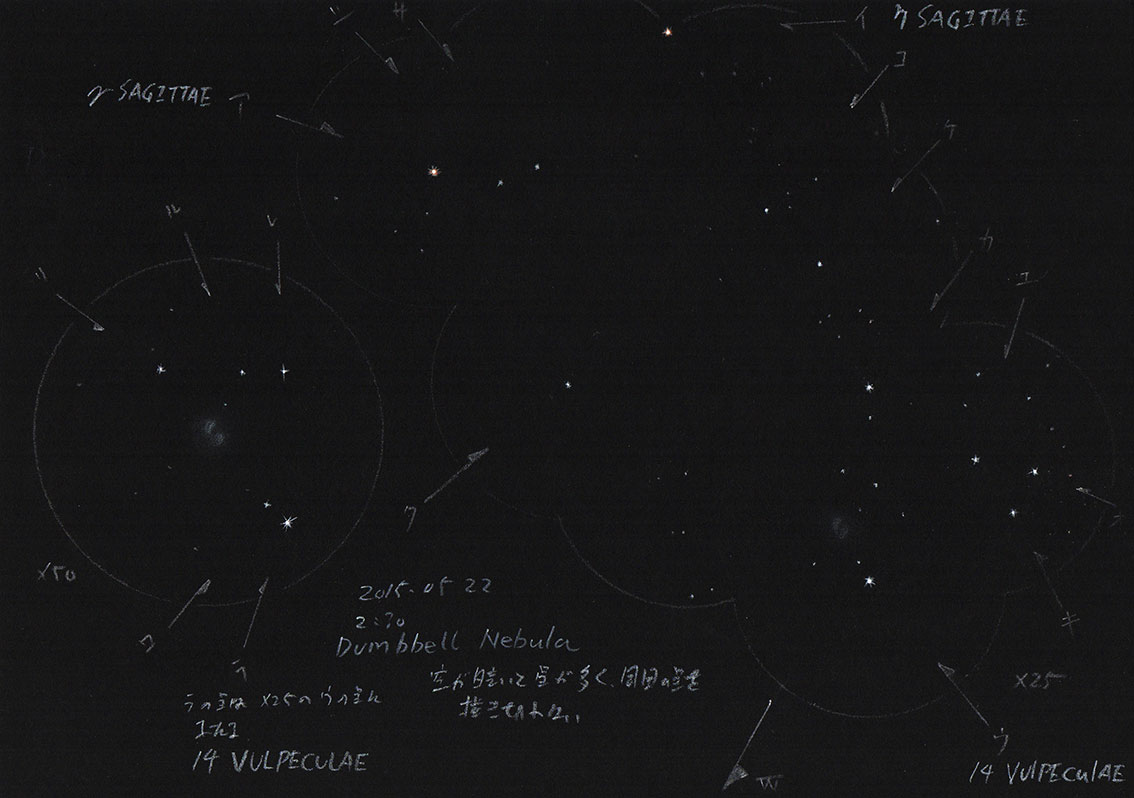 シ
サ
イ
η SAGITTAE
コ
γ SAGITTAE
ア
ケ
カ
ル
レ
エ
リ
ク
オ
キ
×50
ワ
ラ
2015.05 22
2:30
Dumbbell Nebula
空が暗いと星が多く、周囲の星を
描ききれない
ラの星は ×25のウの星に
14 VULPECULAE
×25
ウ
14 VULPECULAE
W